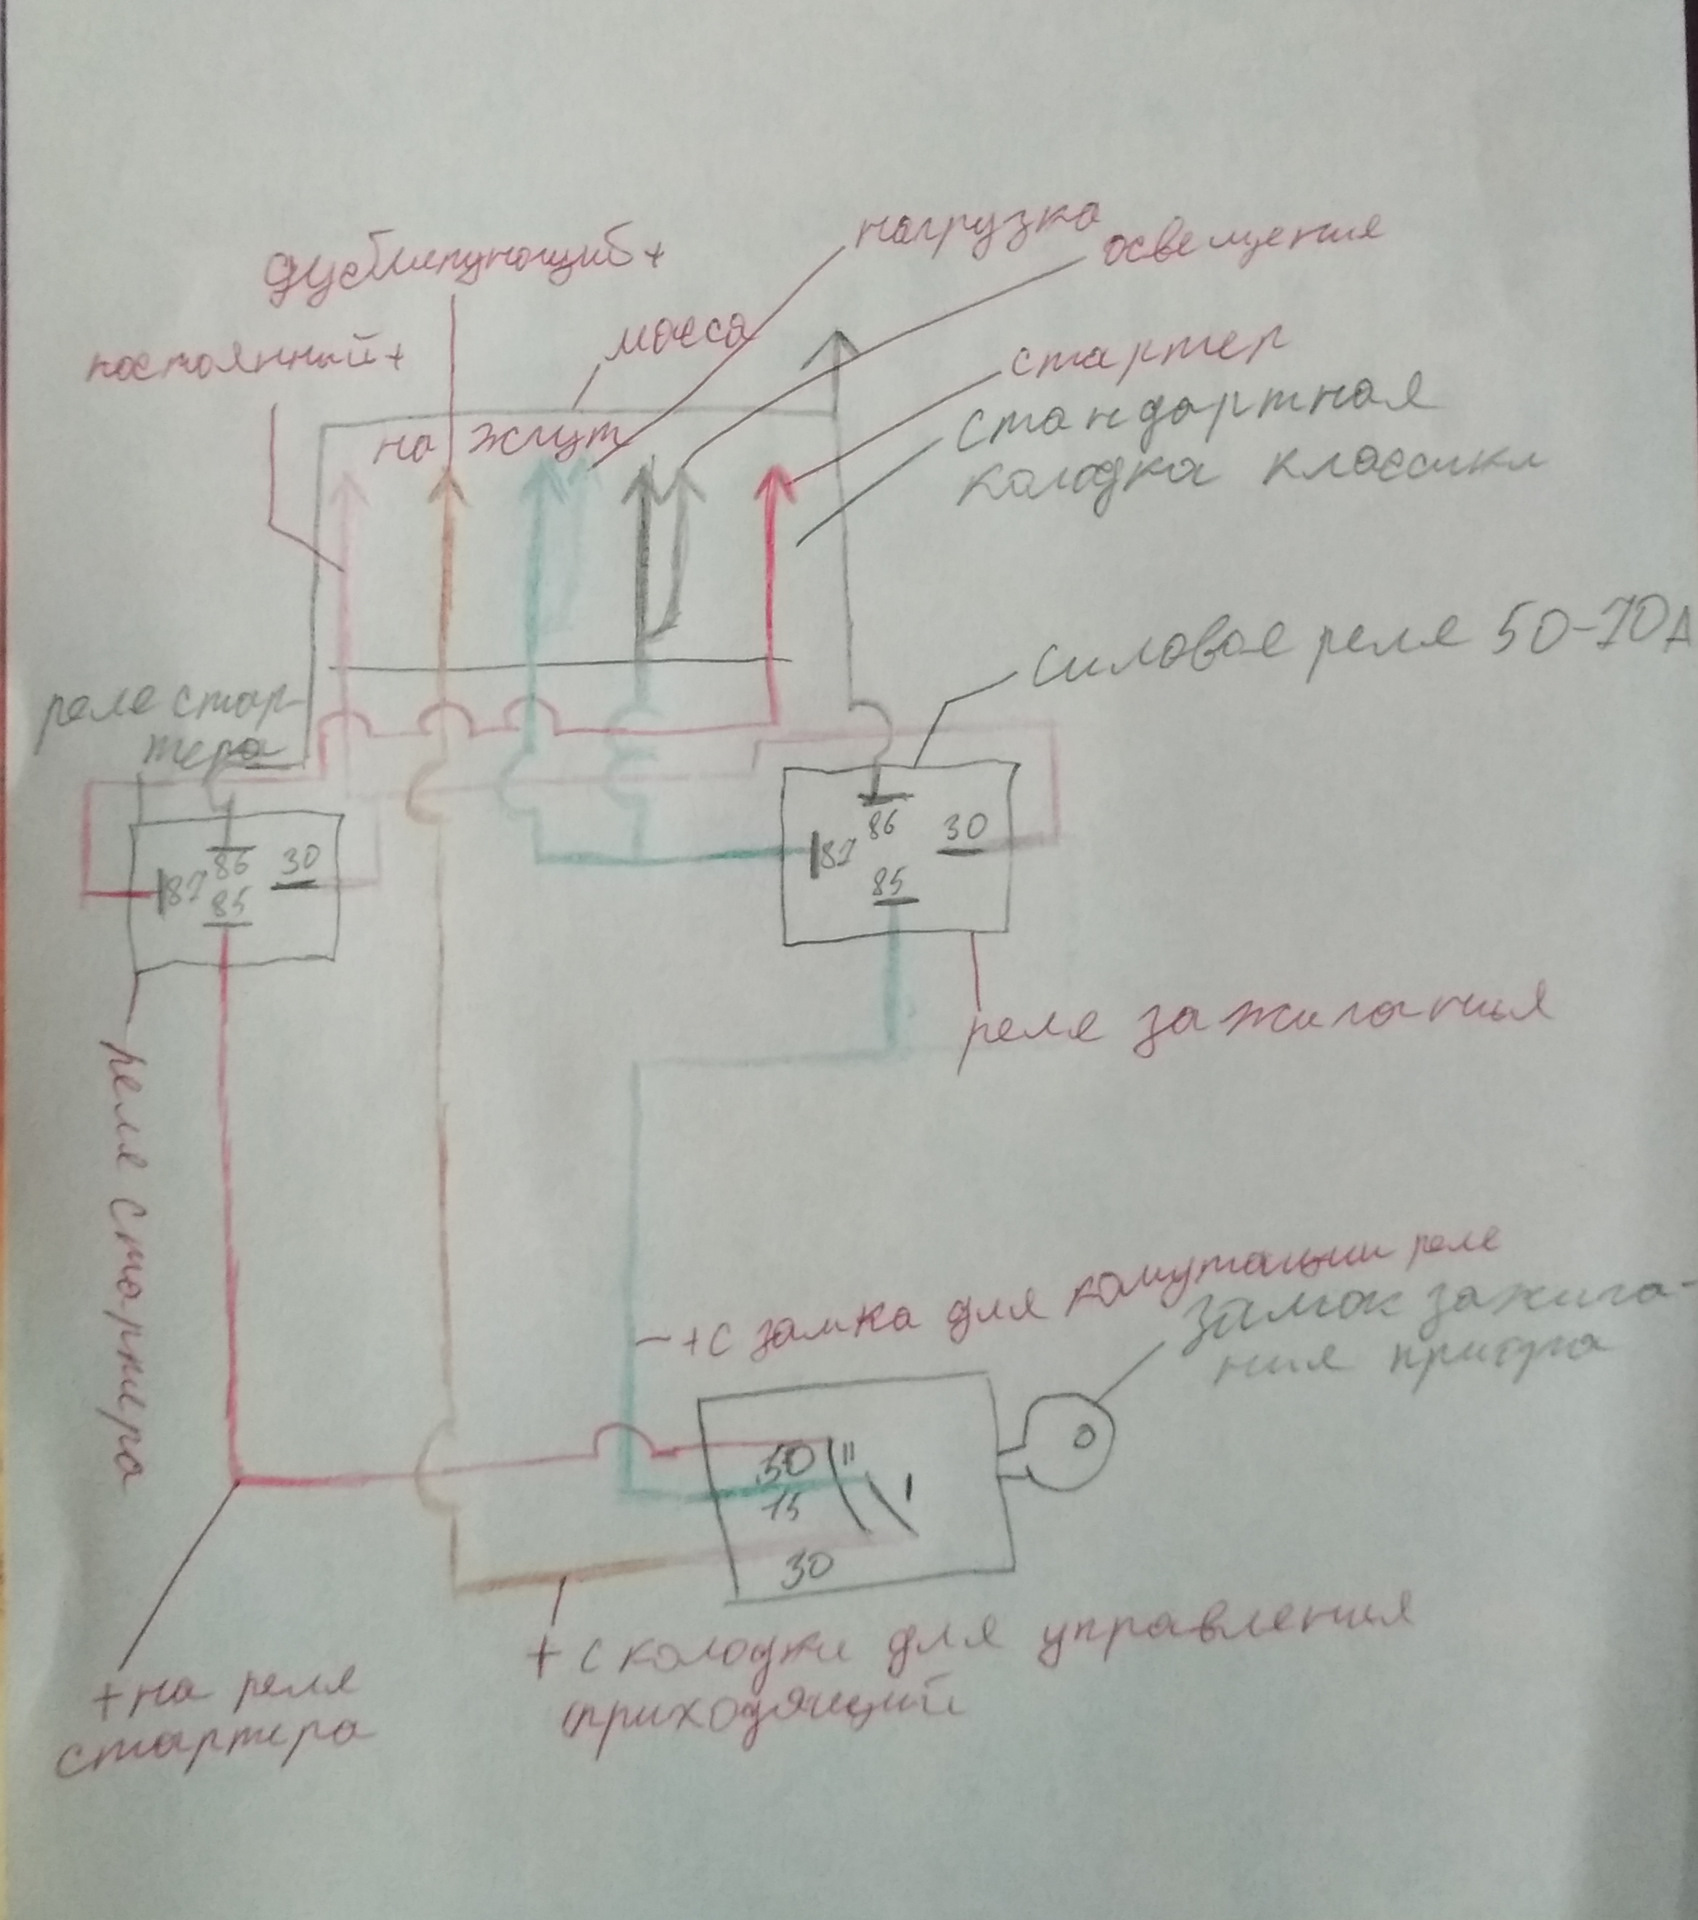 нагрузка
освещения
дублирующий +
масса
постоянный +
стартер
стандартная
колодка классики
на жгут
силовое реле 50-70А
реле стар-
тера
86
30
87
85
86
30
87
85
реле зажигания
реле стартера
+ с замка для комутации реле
замок зажига-
ния приора
50
15
30
II
I
+ с колодки для управления
приходящий
+ на реле
стартера